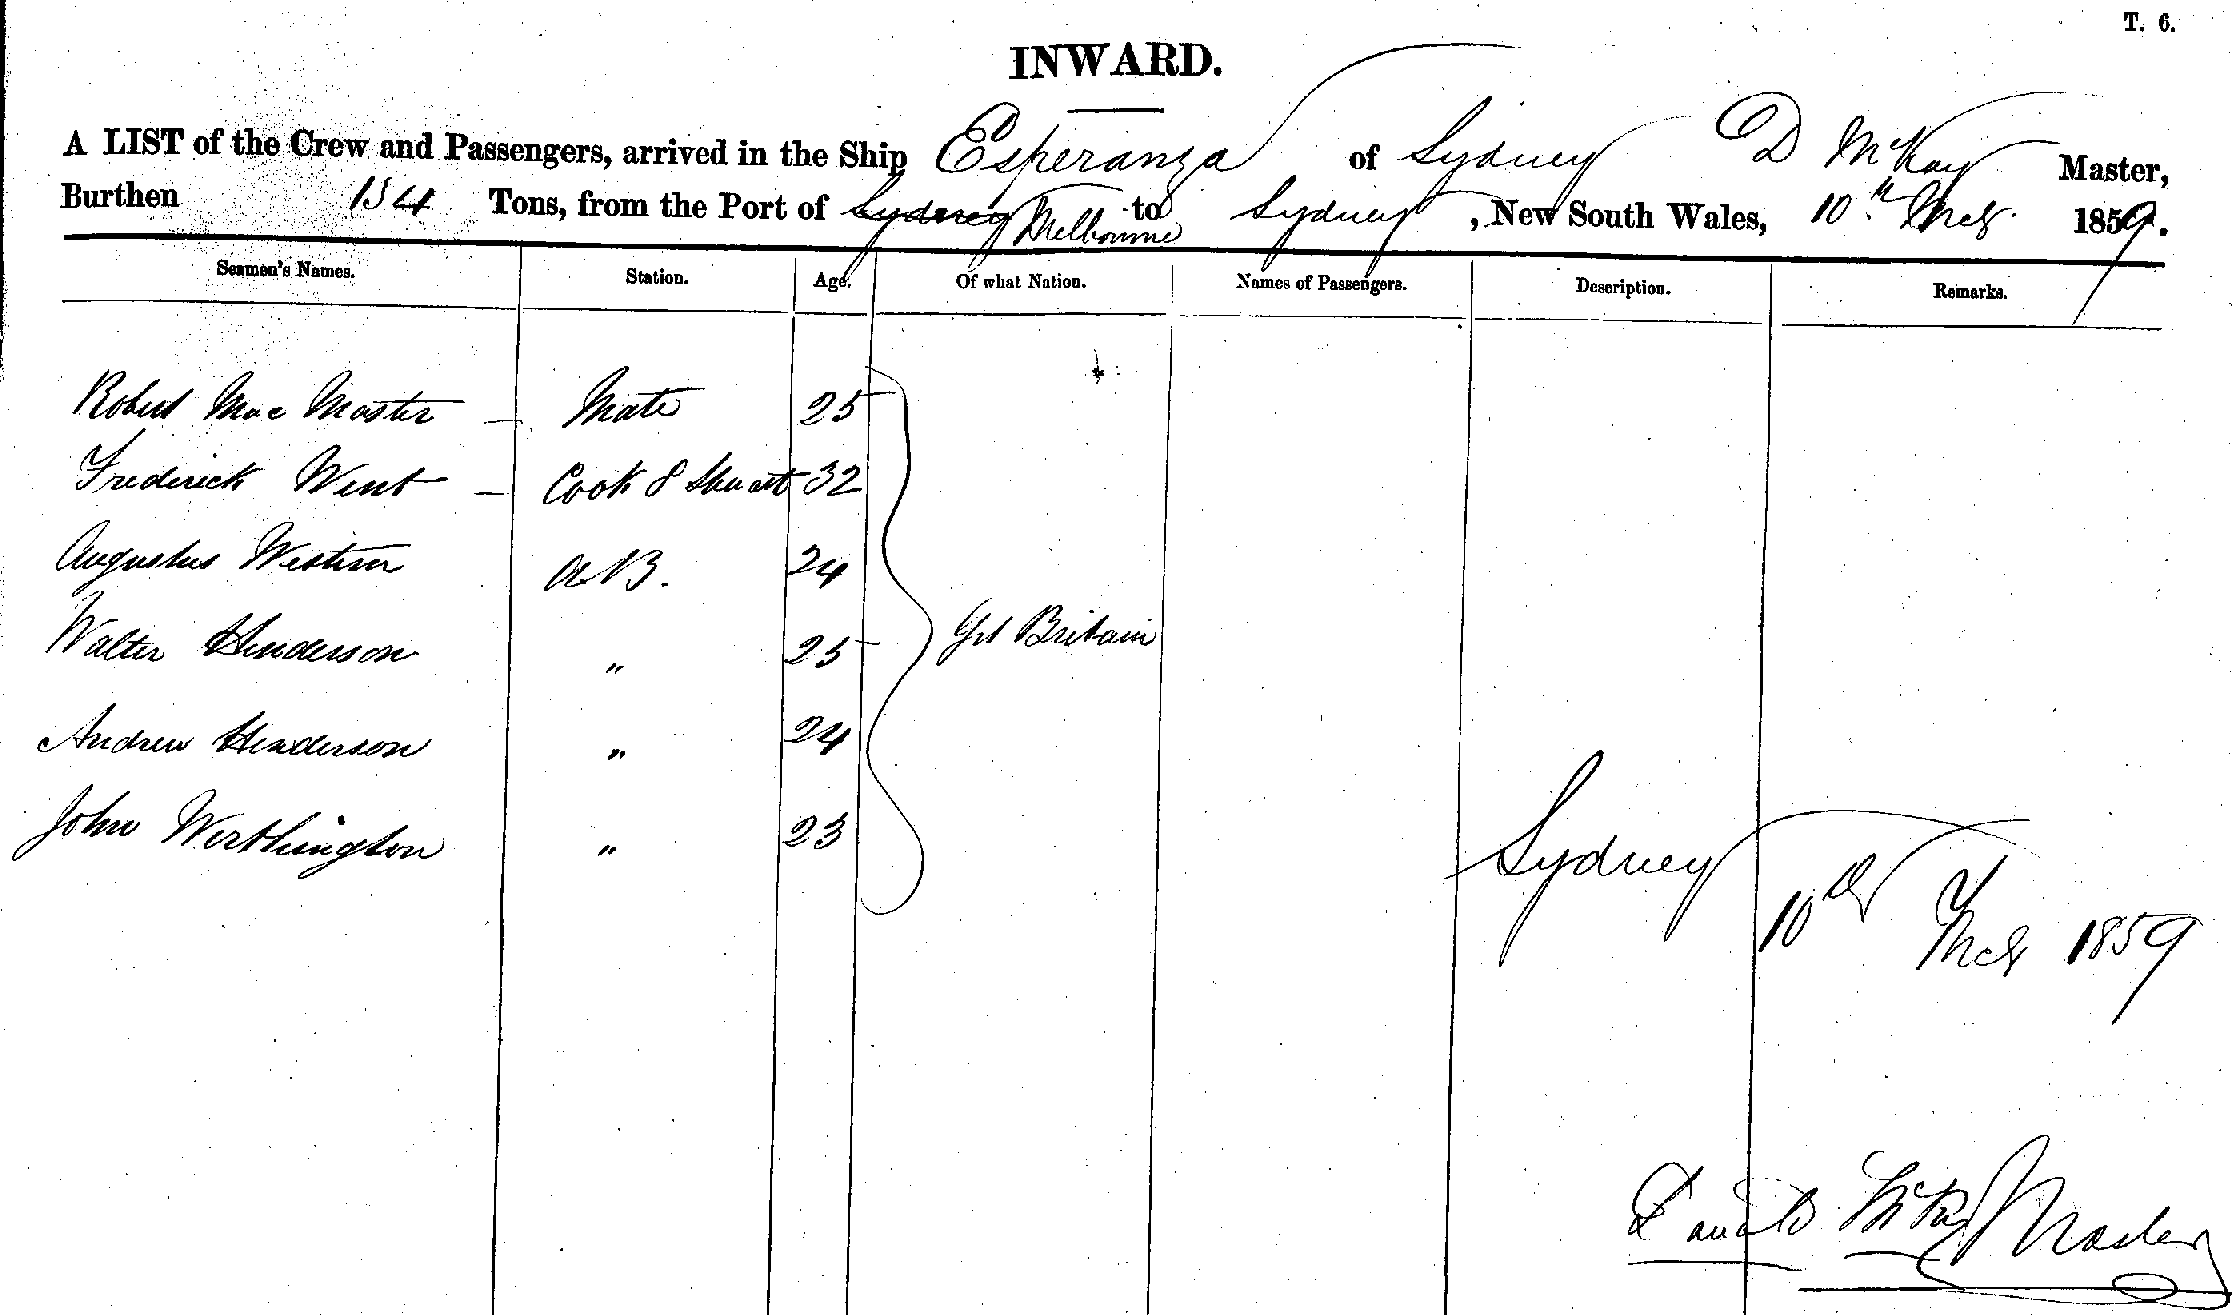 T. 6.
INWARD.
A LIST of the Crew and Passengers, arrived in the Ship Esperanza of Sydney D McKay Master,
Burthen 154 Tons, from the Port of Sydney Melbourne to Sydney, New South Wales, 10th 1859.
Seamen's Names. Station. Age. Of what Nation. Names of Passengers. Description. Remarks.
Robert Mac Master — Mate 25
Frederick Went — Cook & Stuart 32
Augustus A B. 24
Walter Henderson " 25 Gt Britain
Andrew Henderson " 24
John Worthington " 23
Sydney
10th 1859
Donald McKay Master